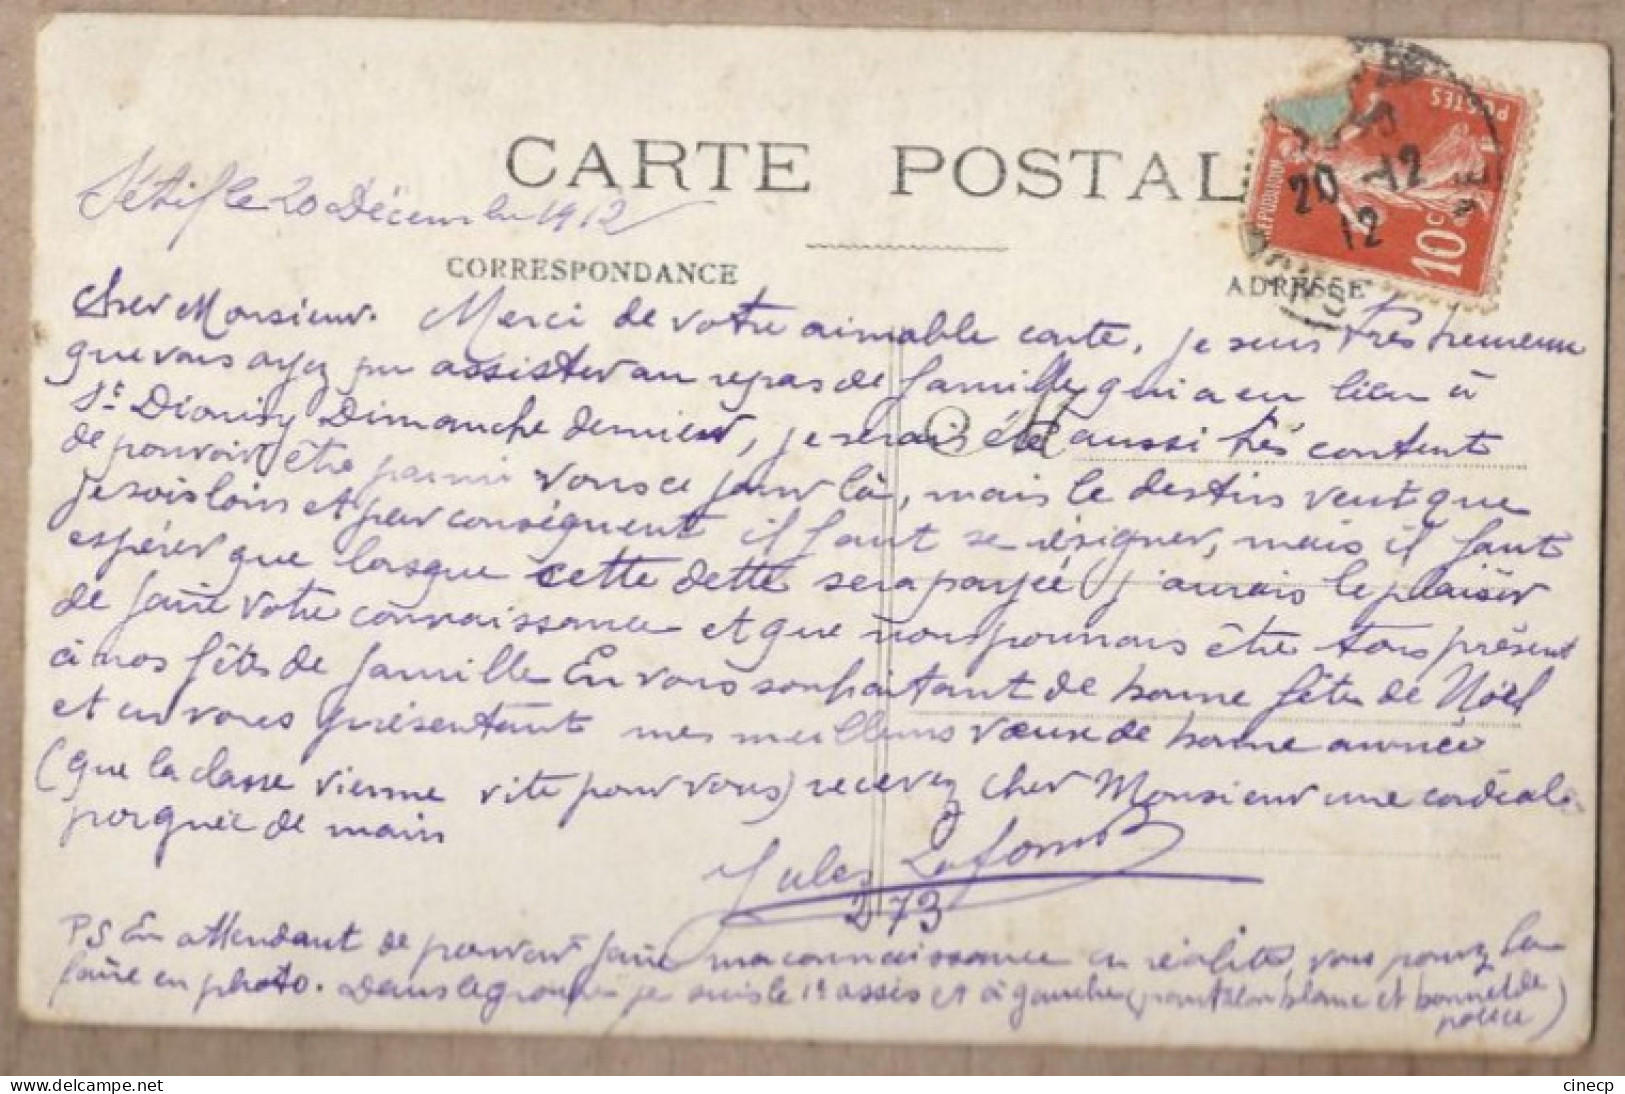 CARTE POSTAL
Sétif le 20 Décembre 1912
CORRESPONDANCE
ADRESSE
POSTES
10c
20 -12
12
Cher Monsieur. Merci de votre aimable carte, je suis très heureux
que vous ayez pu assister au repas de famille qui a eu lieu à
St Dionisy Dimanche dernier, je serais été aussi très content
de pouvoir être parmi vous ce jour là, mais le destin veut que
je sois loin et par conséquent il faut se résigner, mais il faut
espérer que lorsque cette dette sera payée j'aurais le plaisir
de faire votre connaissance et que nous pourrions être tous présent
à nos fêtes de famille En vous souhaitant de bonne fêtes de Noël
et en vous présentant mes meilleurs vœux de bonne année
(que la classe vienne vite pour vous) recevez cher Monsieur une cordiale
poignée de main
Jules Lafont
273
PS En attendant de pouvoir faire ma connaissance en réalité, vous pouvez la
faire en photo. Dans le groupe je suis le 1er assis et à gauche (pantalon blanc et bonnet de
police)
cinecp